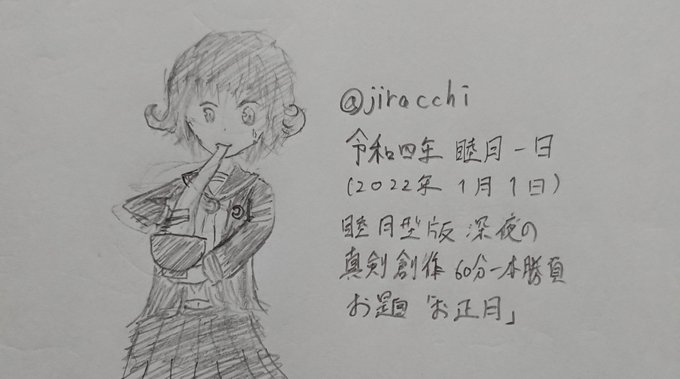 @jiracchi
令和四年 睦月一日
(2022年 1月1日)
睦月型版 深夜の
真剣創作 60分一本勝負
お題「お正月」